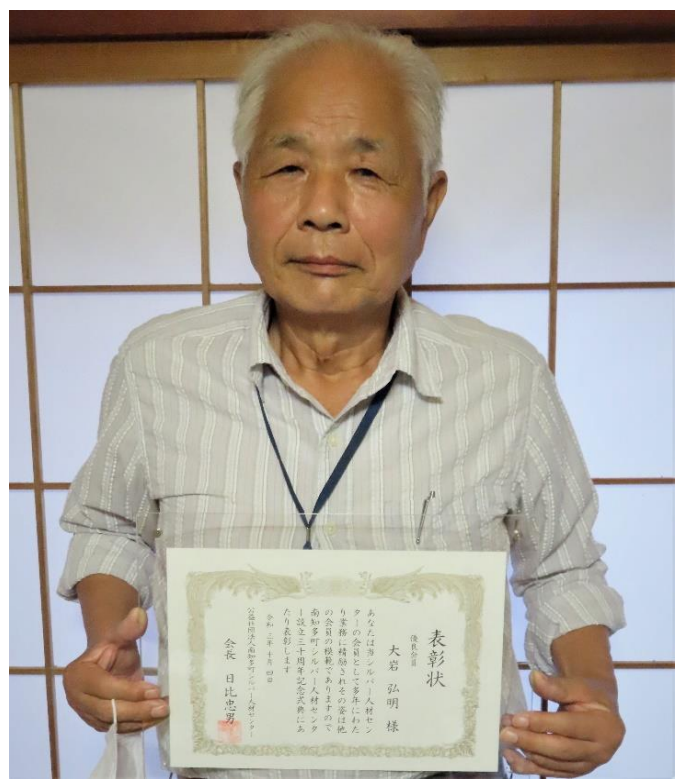 表彰状
優良会員
大岩 弘明 様
あなたは当シルバー人材セン
ターの会員として多年にわた
り業務に精励されその姿は他
の会員の模範でありますので
南知多町シルバー人材センタ
ー設立三十周年記念式典にあ
たり表彰します
令和 三年 十月 四日
公益社団法人南知多町シルバー人材センター
会長 日比忠男